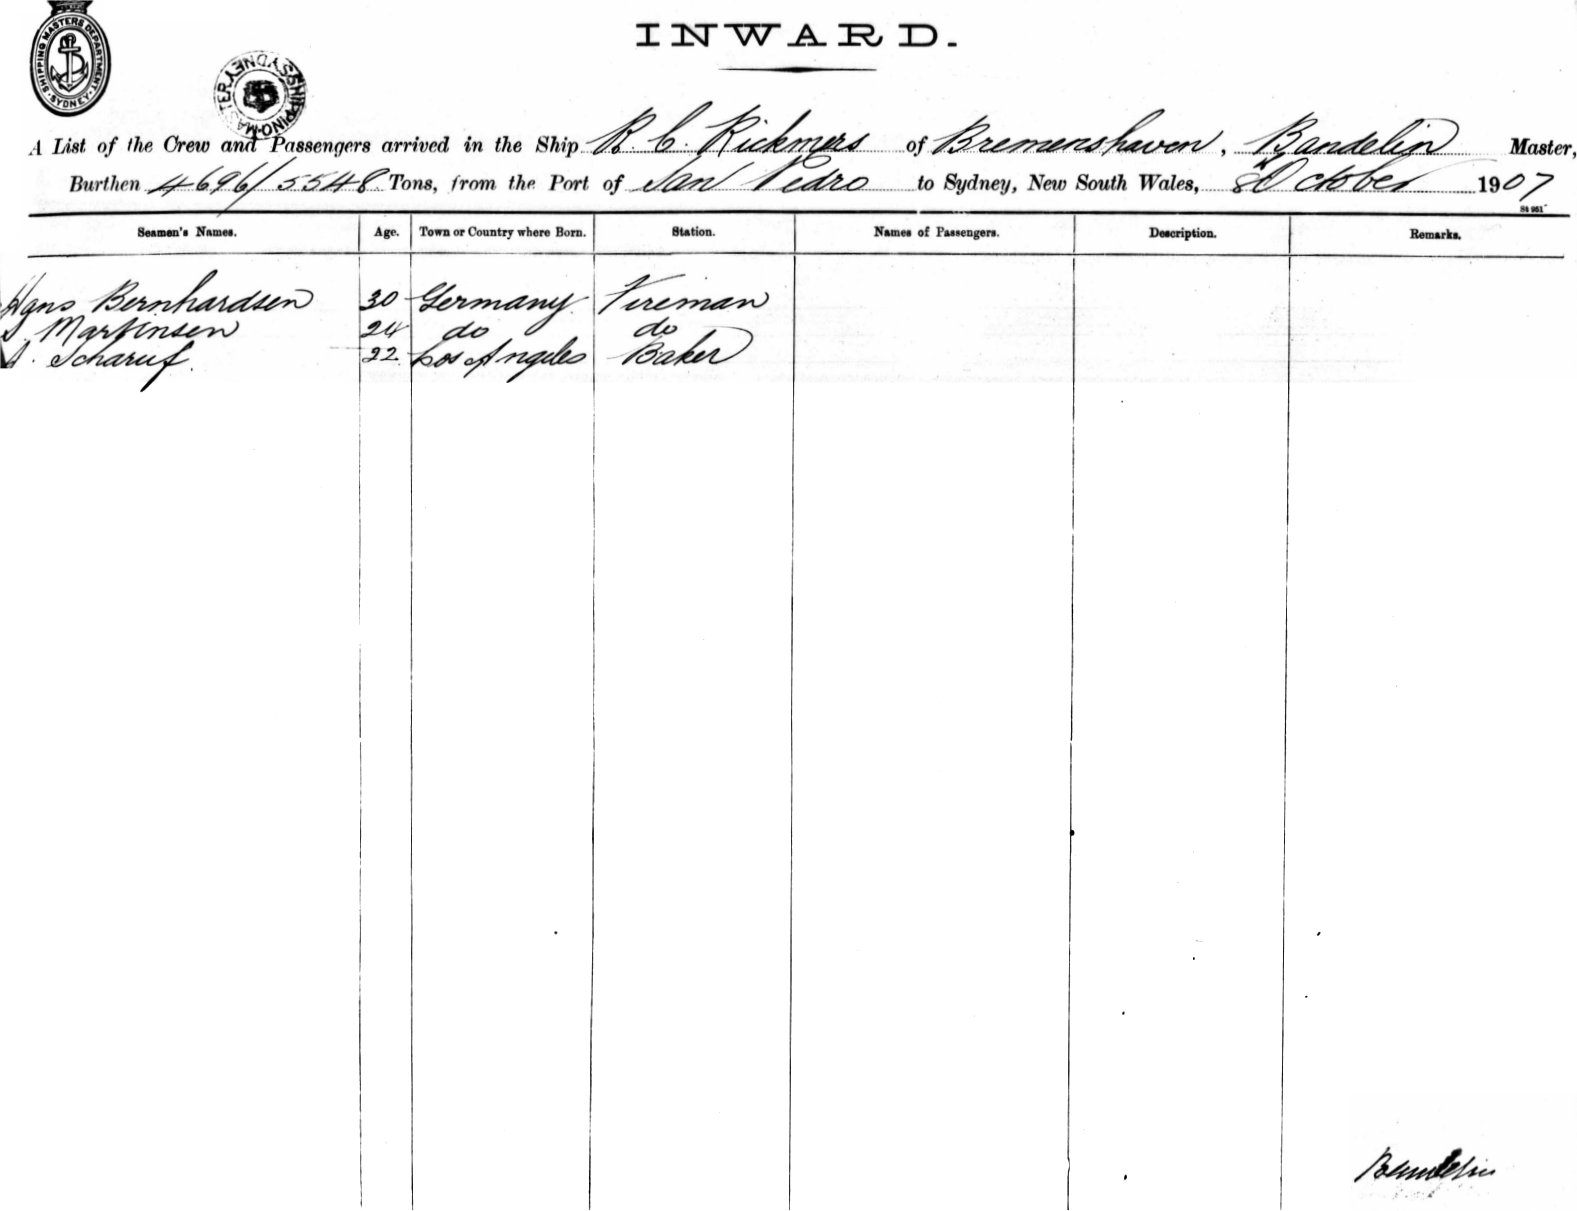 SHIPPING MASTERS DEPARTMENT. SYDNEY.
SHIPPING MASTER SYDNEY
INWARD.
A List of the Crew and Passengers arrived in the Ship R. C. Rickmers of Bremenshaven, Bandelin Master,
Burthen 4696/5548 Tons, from the Port of San Pedro to Sydney, New South Wales, 8 October 1907
Seamen's Names. Age. Town or Country where Born. Station. Names of Passengers. Description. Remarks.
Hans Bernhardsen 30 Germany Fireman
Martinsen 24 do do
Scharuf. 22 Los Angeles Baker
Bandelin